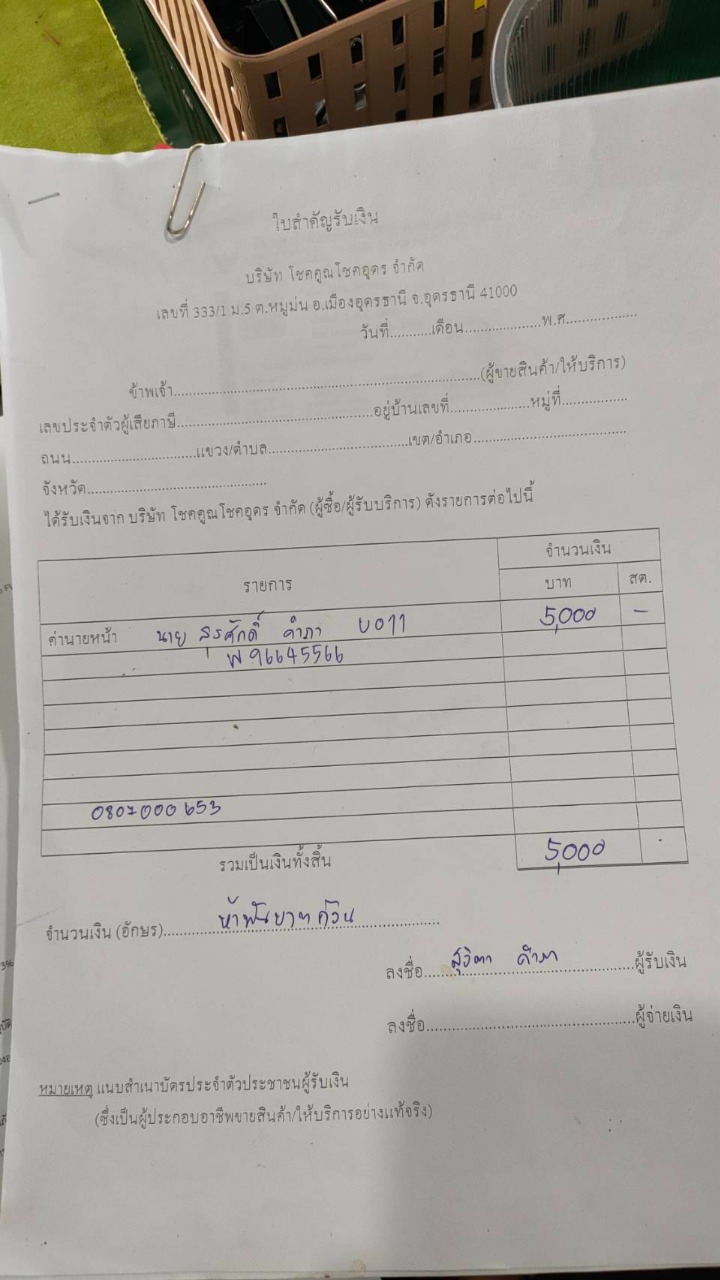 ใบสำคัญรับเงิน
บริษัท โชคคูณโชคอุดร จำกัด
เลขที่ 333/1 ม.5 ต.หมูม่น อ.เมืองอุดรธานี จ.อุดรธานี 41000
วันที่..........เดือน...................พ.ศ.................
ข้าพเจ้า............................................................................(ผู้ขายสินค้า/ให้บริการ)
เลขประจำตัวผู้เสียภาษี.................................................อยู่บ้านเลขที่....................หมู่ที่.................
ถนน...............................แขวง/ตำบล...................................เขต/อำเภอ......................................
จังหวัด.............................................
ได้รับเงินจาก บริษัท โชคคูณโชคอุดร จำกัด (ผู้ซื้อ/ผู้รับบริการ) ดังรายการต่อไปนี้
รายการ จำนวนเงิน
บาท สต.
ค่านายหน้า นาย สุรศักดิ์ คำภา 5,000 -
W96645566
0807000653
รวมเป็นเงินทั้งสิ้น 5,000 -
จำนวนเงิน (อักษร) ห้าพันบาทถ้วน
ลงชื่อ สุจิตา คำภา ผู้รับเงิน
ลงชื่อ....................................................ผู้จ่ายเงิน
หมายเหตุ แนบสำเนาบัตรประจำตัวประชาชนผู้รับเงิน
(ซึ่งเป็นผู้ประกอบอาชีพขายสินค้า/ให้บริการอย่างแท้จริง)
3%